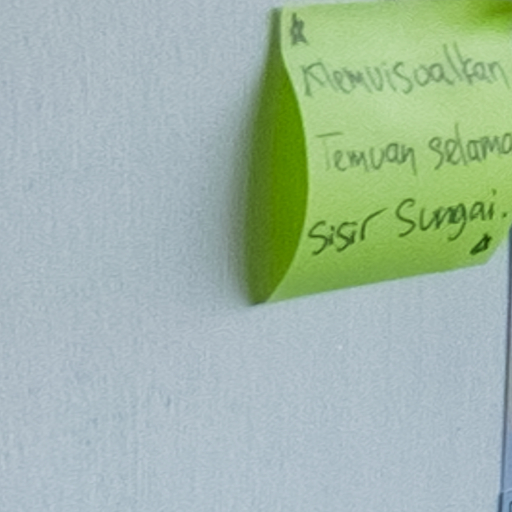 Memvisoalkan
Temuan selama
Sisir Sungai.